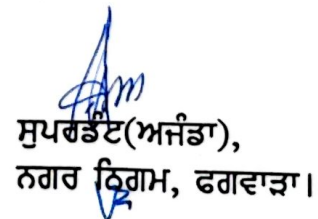 ਸੁਪਰਡੰਟ(ਅਜੰਡਾ),
ਨਗਰ ਨਿਗਮ, ਫਗਵਾੜਾ।